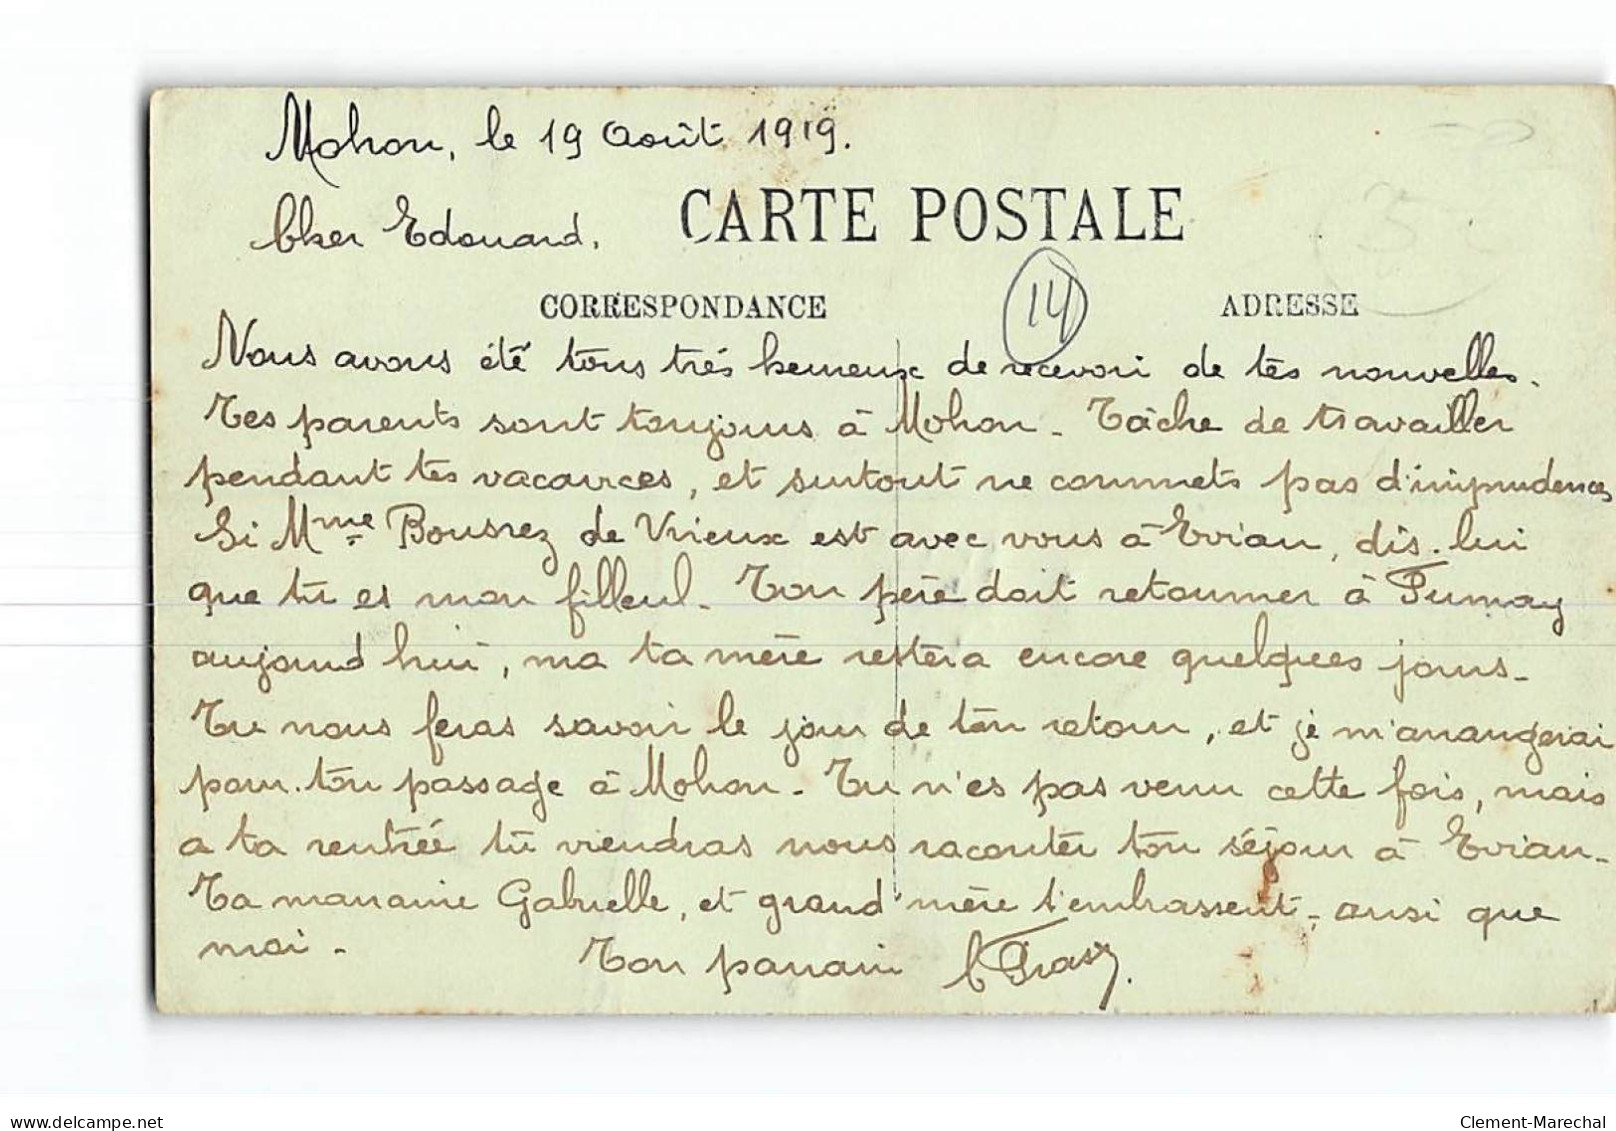 Mohon, le 19 Août 1919.
Cher Edouard,
CARTE POSTALE
CORRESPONDANCE
14
ADRESSE
Nous avons été tous très heureux de recevoir de tes nouvelles.
Tes parents sont toujours à Mohon. Tâche de travailler
pendant tes vacances, et surtout ne commets pas d'imprudences
Si Mme Bousrez de Vrieux est avec vous à Evian, dis-lui
que tu es mon filleul. Ton père doit retourner à Fumay
aujourd'hui, ma ta mère restera encore quelques jours.
Tu nous feras savoir le jour de ton retour, et je m'arrangerai
pour ton passage à Mohon. Tu n'es pas venu cette fois, mais
a ta rentrée tu viendras nous raconter ton séjour à Evian.
Ta marraine Gabrielle, et grand'mère t'embrassent, ausi que
moi.
Ton parrain
delcampe.net
Clement-Marechal